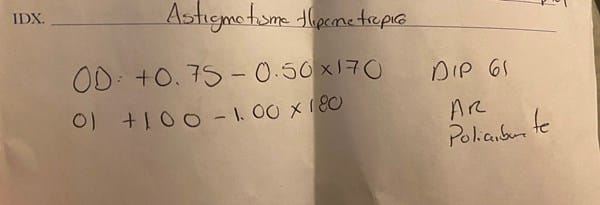 IDX. Astigmotismo Hipermetropico
OD: +0.75 - 0.50 x 170 DIP 61
OI +100 - 1.00 x 180 AR
Policarbonate